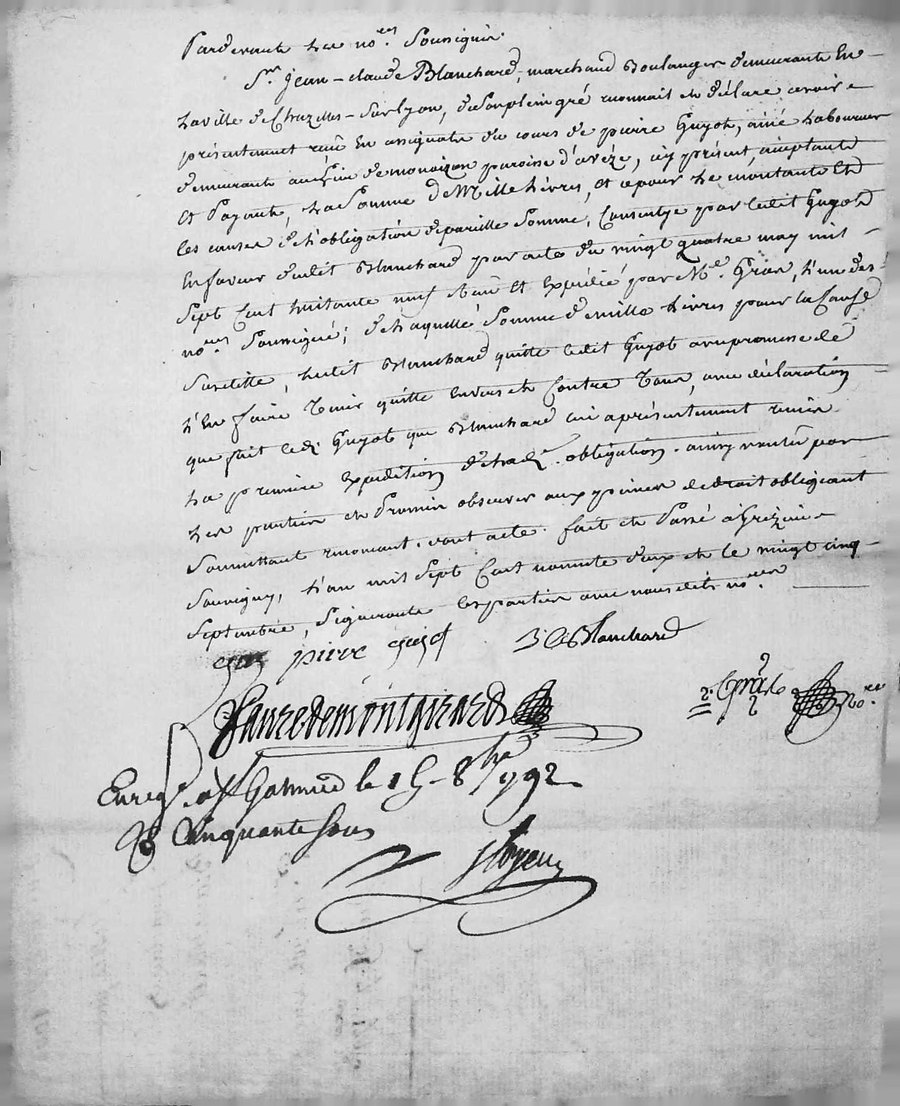 Pardevant les no.res Soussignés
S.r Jean-claude Blanchard, marchand Boulanger demeurante En
la ville de Chazelles-Sur lyon, de son plein gré reconnait et déclare avoir
présentement reçû En assignats du cours de pierre Guyot, ainé laboureur
demeurante au lieu de paroisse d'avèze, icy présent, acceptante
Et Payante, la Somme de Mille livres, et ce pour le montante Et
les causes de l'obligation de pareille Somme, Consentye par ledit Guyot
En faveur dudit Blanchard par acte du vingt quatre may mil
Sept Cent huitante neuf Reçu Et Expédié par M.e Gran, l'un des
no.res Soussignés; de laquelle Somme de mille livres pour la Cause
Susditte, ledit Blanchard quitte ledit Guyot avec promesse de
l'En faire Tenir quitte Envers et Contre Tous, avec déclaration
que fait led. Guyot que Blanchard lui a présentement remis
la premiere Expedition de lad.e obligation. ainsy par
les parties et Promis observer aux peines de droit obligeant
Soumettant renonçant. dont acte. fait et Passé à Grezieu
Souvigny, l'an mil Sept Cent nonante deux et le vingt cinq
Septembre, Signeronte les parties avec nous dits no.res
pierre guiot J: C Blanchard
Faure de montgirard
Gran no.re
Enreg.é a S.t Galmier le 15 8bre 1792
R. Cinquante Sous